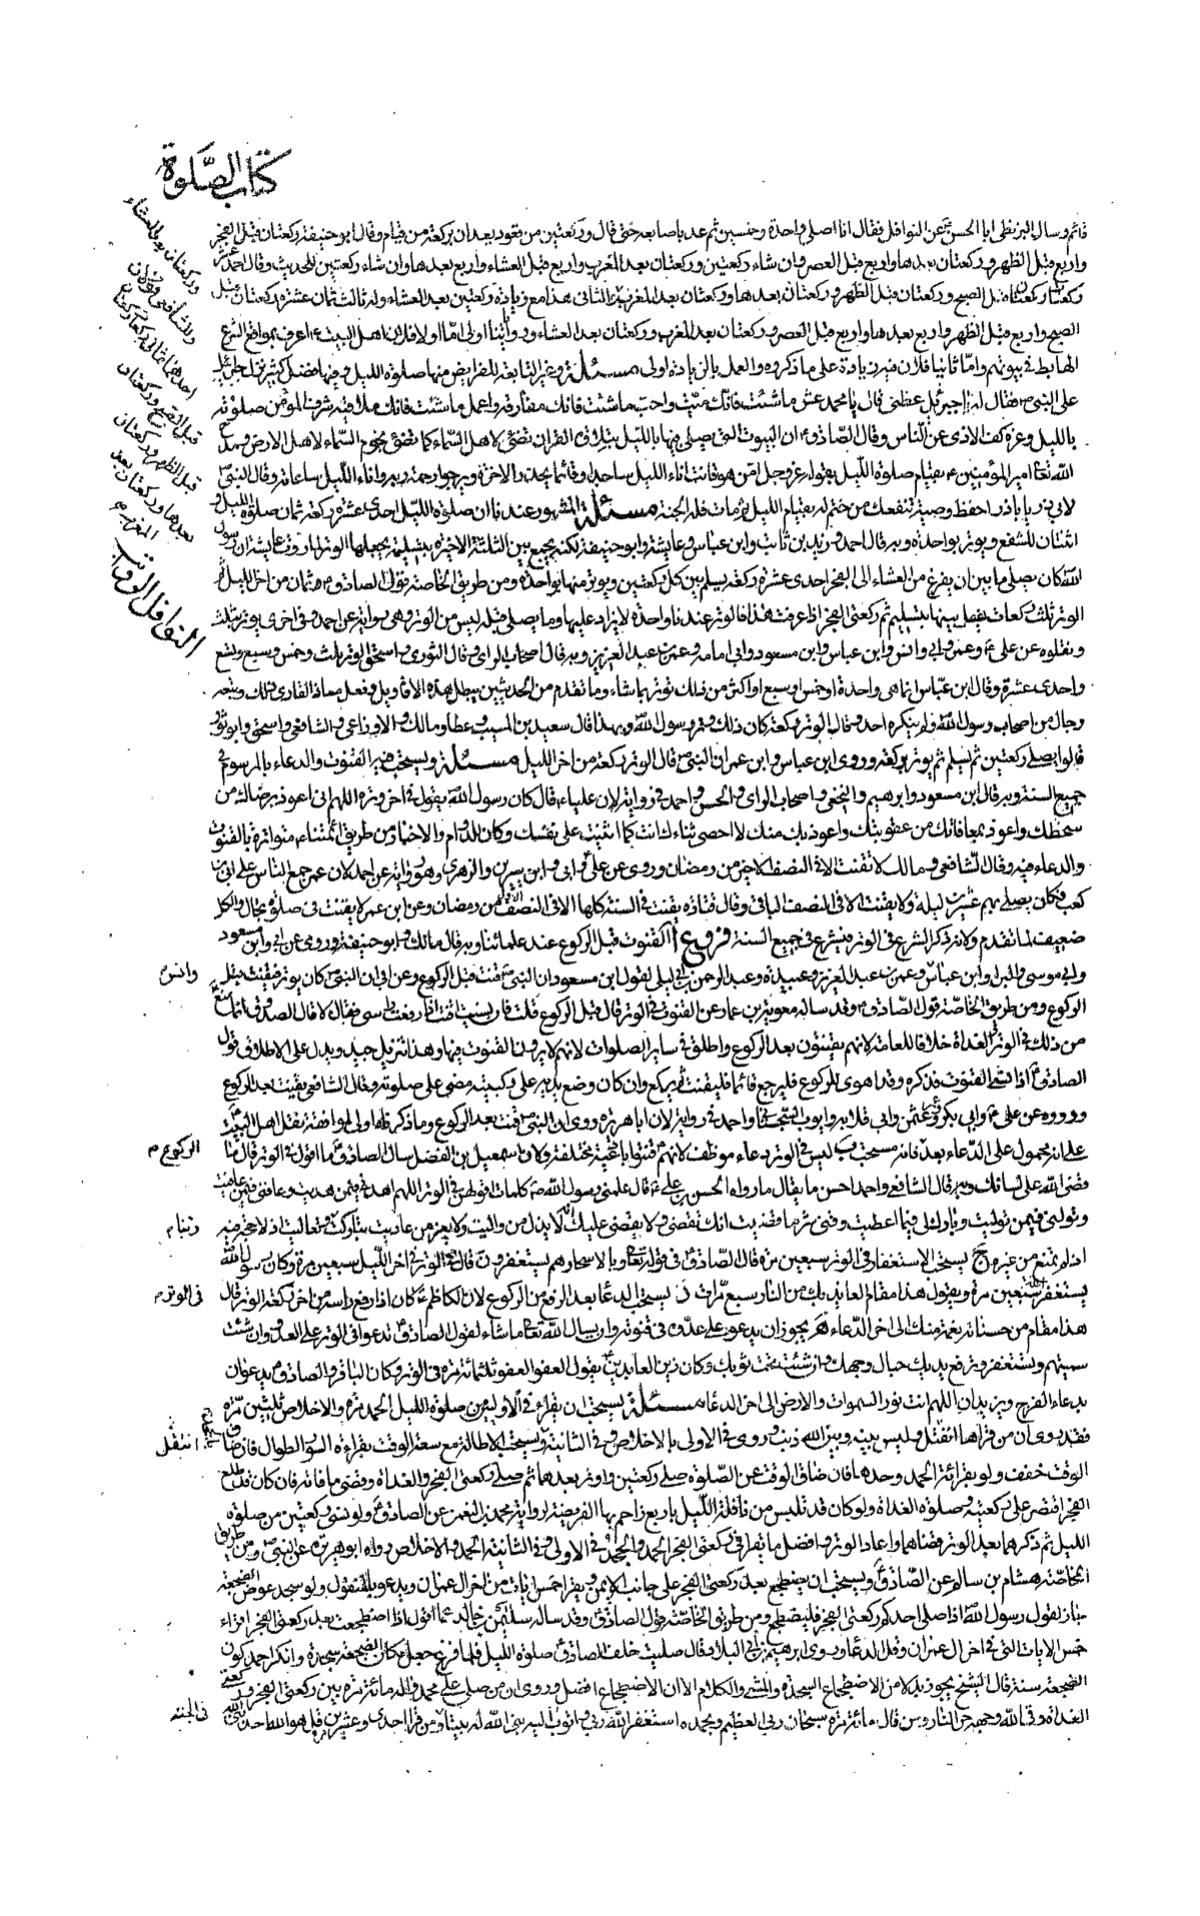 كتاب الصَّلوة
قائم وسال البزنطى ابا الحسن ع عن النوافل فقال انا اصلى واحدة وخمسين ثم عد باصابعه حتى قال وركعتين من قعود يعدان بركعة من قيام وقال ابو حنيفة ركعتان قبل الفجر
واربع قبل الظهر وركعتان بعدها واربع قبل العصر وان شاء ركعتين وركعتان بعد المغرب واربع قبل العشاء واربع بعدها وان شاء ركعتين للحديث وقال احمد عشر
ركعات ركعتان قبل الصبح وركعتان قبل الظهر وركعتان بعدها وركعتان بعد المغرب الثانى هذا مع زيادة ركعتين بعد العشاء وله ثالث ثمان عشرة ركعتان قبل
الصبح واربع قبل الظهر واربع بعدها واربع قبل العصر وركعتان بعد المغرب وركعتان بعد العشاء وروايتنا اولى اما اولا فلان اهل البيت ع اعرف بمواقع الشرع
الهابط فى بيوتهم واما ثانيا فلان فيه زيادة على ما ذكروه والعمل بالزيادة اولى مسئلة وغير التابعة للفرايض منها صلوة الليل وفيها فضل كثير نزل جبرئيل
على النبى ص فقال له يا جبرئيل عظنى قال يا محمد عش ما شئت فانك ميت واحب ما شئت فانك مفارقه واعمل ما شئت فانك ملاقيه شرف المؤمن صلوته
بالليل وعزه كف الاذى عن الناس وقال الصادق ع ان البيوت التى يصلى فيها بالليل بتلاوة القران تضئ لاهل السماء كما تضئ نجوم السماء لاهل الارض ومدح
الله تعا امير المؤمنين ع بقيام صلوة الليل بقوله عز وجل امن هو قانت اناء الليل ساجدا وقائما يحذر الاخرة ويرجو رحمة ربه واناء الليل ساعاته وقال النبى ص
لابى ذر يا باذر احفظ وصية تنفعك من ختم له بقيام الليل ثم مات فله الجنة مسئلة المشهور عندنا ان صلوة الليل احدى عشرة ركعة ثمان صلوة الليل و
اثنتان للشفع ويوتر بواحدة وبه قال احمد وزيد بن ثابت وابن عباس وعايشة وابو حنيفة لكنه يجمع بين الثلثة الاخيرة بتسليمة يجعلها الوتر لما روت عايشة ان رسول
الله كان يصلى ما بين ان يفرغ من العشاء الى الفجر احدى عشرة ركعة يسلم بين كل ركعتين ويوتر منها بواحدة ومن طريق الخاصة قول الصادق ع ثمان من اخر الليل ثم
الوتر ثلث ركعات يفصل بينها بتسليم ثم ركعتى الفجر اذا عرفت هذا فالوتر عندنا واحدة لا يزاد عليها وما يصلى قبله ليس من الوتر وهى رواية عن احمد وفى اخرى يوتر بثلث
ونقلوه عن على ع وعمر وابى وانس وابن عباس وابن مسعود وابى امامه وعمر بن عبد العزيز وبه قال اصحاب الراى وقال الثورى واسحق الوتر ثلث وخمس وسبع وتسع
واحدى عشرة وقال ابن عباس انما هى واحدة او خمس او سبع او اكثر من ذلك توتر بما شاء وما تقدم من الحديثين يبطل هذه الاقاويل وفعل معاذ القارى ذلك ومعه
رجال من اصحاب رسول الله ولم ينكره احد وقال الوتر ركعة كان ذلك وتر رسول الله وبهذا قال سعيد بن المسيب وعطا ومالك والاوزاعى والشافعى واسحق وابو ثور
قالوا يصلى ركعتين ثم يسلم ثم يوتر بركعة وروى ابن عباس وابن عمر ان النبى ص قال الوتر ركعة من اخر الليل مسئلة ويستحب فيه القنوت والدعاء بالمرسوم فى
جميع السنة وبه قال ابن مسعود وابرهيم والنخعى واصحاب الراى والحسن واحمد فى رواية لان عليا ع قال كان رسول الله ص يقول فى اخر وتره اللهم انى اعوذ برضاك من
سخطك واعوذ بمعافاتك من عقوبتك واعوذ بك منك لا احصى ثناء عليك انت كما اثنيت على نفسك وكان للدوام والاخبار من طريق ائمتنا ع متواترة بالقنوت
والدعاء فيه وقال الشافعى ومالك لا تقنت الا فى النصف الاخير من رمضان وروى عن على ع وابى وابن سيرين والزهرى وهو رواية عن احمد لان عمر جمع الناس على ابى بن
كعب فكان يصلى بهم عشرين ليلة ولا يقنت الا فى النصف الباقى وقال قتاده يقنت فى السنة كلها الا فى النصف الاول من رمضان وعن ابن عمر لا يقنت فى صلوة بحال والكل
ضعيف لما تقدم ولانه ذكر الشرع فى الوتر فيشرع فى جميع السنة فروع ا القنوت قبل الركوع عند علمائنا وبه قال مالك وابو حنيفة وروى عن ابى وابن مسعود
وابى موسى والبراء وابن عباس وعمر بن عبد العزيز وعبيدة وعبد الرحمن بن ابى ليلى لقول ابن مسعود ان النبى ص قنت قبل الركوع وعن ابى ان النبى ص كان يوتر فيقنت قبل
الركوع ومن طريق الخاصة قول الصادق ع وقد ساله معوية بن عمار عن القنوت فى الوتر قال قبل الركوع قلت فان نسيت اقنت اذا رفعت راسى فقال لا قال الصدوق انما منع
من ذلك فى الوتر والغداة خلافا للعامة لانهم يقنتون بعد الركوع واطلق فى ساير الصلوات لانهم لا يرون القنوت فيها وهذا تنزيل جيد ويدل على الاطلاق قول
الصادق ع اذا نسى القنوت فذكره وقد اهوى للركوع فليرجع قائما فليقنت ثم يركع وان كان وضع يديه على ركبتيه مضى على صلوته وقال الشافعى يقنت بعد الركوع
ورووه عن على ع وابى بكر وعمر وعثمن وابى قلابه وايوب السختيانى واحمد فى رواية لان ابا هريرة روى ان النبى ص قنت بعد الركوع وما ذكرناه اولى لموافقته نقل اهل البيت ع
على انه محمول على الدعاء بعده فانه مستحب ب ليس فى الوتر دعاء موظف لانهم ع قنتوا بادعية مختلفة ولان اسمعيل بن الفضل سال الصادق ع ما اقول فى الوتر قال ما
قضى الله على لسانك وبه قال الشافعى واحمد احسن ما يقال ما رواه الحسن بن على ع قال علمنى رسول الله ص كلمات اقولهن فى الوتر اللهم اهدنى فيمن هديت وعافنى فيمن عافيت
وتولنى فيمن توليت وبارك لى فيما اعطيت وقنى شر ما قضيت انك تقضى ولا يقضى عليك انه لا يذل من واليت ولا يعز من عاديت تباركت وتعاليت
ج يستحب الاستغفار فى الوتر سبعين مرة قال الصادق ع فى قوله تعا وبالاسحار هم يستغفرون قال فى الوتر فى اخر الليل سبعين مرة وكان رسول الله
يستغفر الله سبعين مرة ويقول هذا مقام العايذ بك من النار سبع مرات د يستحب الدعا بعد الرفع من الركوع لان الكاظم ع كان اذا رفع راسه من اخر ركعة الوتر قال
هذا مقام من حسناته نعمة منك الى اخر الدعاء ه يجوز ان يدعو على عدوه فى قنوته وان يسال الله تعا ما شاء لقول الصادق ع تدعو فى الوتر على العدو وان شئت
سميتهم وتستغفر وترفع يديك حيال وجهك وان شئت تحت ثوبك وكان زين العابدين ع يقول العفو العفو ثلثمائة مرة فى الوتر وكان الباقر والصادق ع يدعوان
بدعاء الفرج ويزيدان اللهم انت نور السموات والارض الى اخر الدعاء مسئلة يستحب ان يقراء فى الاوليين من صلوة الليل الحمد مرة والاخلاص ثلثين مرة
فقد روى ان من قراها انفتل وليس بينه وبين الله ذنب وروى فى الاولى بالاخلاص وفى الثانية ويستحب الاطالة مع سعة الوقت بقراءة السور الطوال فان ضاق
الوقت خفف ولو بقرائة الحمد وحدها فان ضاق الوقت عن الصلوة صلى ركعتين واوتر بعدهما ثم صلى ركعتى الفجر والغداة وقضى ما فاته فان كان قد طلع
الفجر اقتصر على ركعتيه وصلوة الغداة ولو كان قد تلبس من نافلة الليل باربع زاحم بها الفريضة لرواية محمد بن النعمن عن الصادق ع ولو نسى ركعتين من صلوة
الليل ثم ذكرهما بعد الوتر قضاهما واعاد الوتر وافضل ما يقرا فى ركعتى الفجر الحمد والجحد فى الاولى وفى الثانية الحمد والاخلاص رواه ابو هريرة عن النبى ص ومن طريق
الخاصة هشام بن سالم عن الصادق ع ويستحب ان يضطجع بعد ركعتى الفجر على جانبه الايمن ويقرا خمس ايات من اخر ال عمران ويدعو بالمنقول ولو سجد عوض الضجعة
جاز لقول رسول الله ص اذا صلى احدكم ركعتى الفجر فليضطجع ومن طريق الخاصة قول الصادق ع وقد ساله سليمن بن خالد عما اقول اذا اضطجعت بعد ركعتى الفجر اقراء
خمس الايات التى فى اخر ال عمران وقل الدعا وروى ابرهيم بن ابى البلاد قال صليت خلف الصادق ع صلوة الليل فلما فرغ جعل مكان الضجعة سجدة وانكر احمد كون
الضجعة سنة قال الشيخ يجوز بدلا من الاضطجاع السجدة والمشى والكلام الا ان الاضطجاع افضل وروى ان من صلى على محمد واله مائة مرة بين ركعتى الفجر وركعتى
الغداة وقى الله وجهه حر النار ومن قال مائة مرة سبحان ربى العظيم وبحمده استغفر الله ربى واتوب اليه بنى الله له بيتا ومن قرا احدى وعشرين مرة قل هو الله احد
وركعتان بعد العشاء
وللشافعى قولان
احدهما ثمانى ركعات ركعتان
قبل الصبح وركعتان
قبل الظهر وركعتان
بعدها وركعتان بعد
المغرب م
النوافل الرواتب
وانس
الركوع م
ربنا م
فى الوتر م
انفتل
فى الجنة